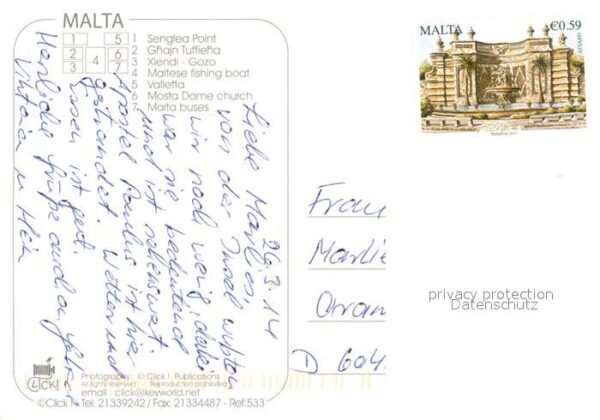 MALTA
1 5
2 6
3 4 7
1 Senglea Point
2 Għajn Tuffieħa
3 Xlendi - Gozo
4 Maltese fishing boat
5 Valletta
6 Mosta Dome church
7 Malta buses
MALTA €0.59
26.3.14
Liebe Marlies,
von der Insel wußten
wir noch wenig, dabei
war sie bedeutend
und ist sehenswert.
Apostel Paulus ist hier
gestrandet. Wetter und
Essen ist gut.
Herzliche Grüße auch an
u
Frau
Marlie
D 604
privacy protection
Datenschutz
CLICK!
Photography : © Click !. Publications
All rights reserved Reproduction prohibited
email : click@keyworld.net
©Click ! - Tel: 21339242 / Fax: 21334487 - Ref:533